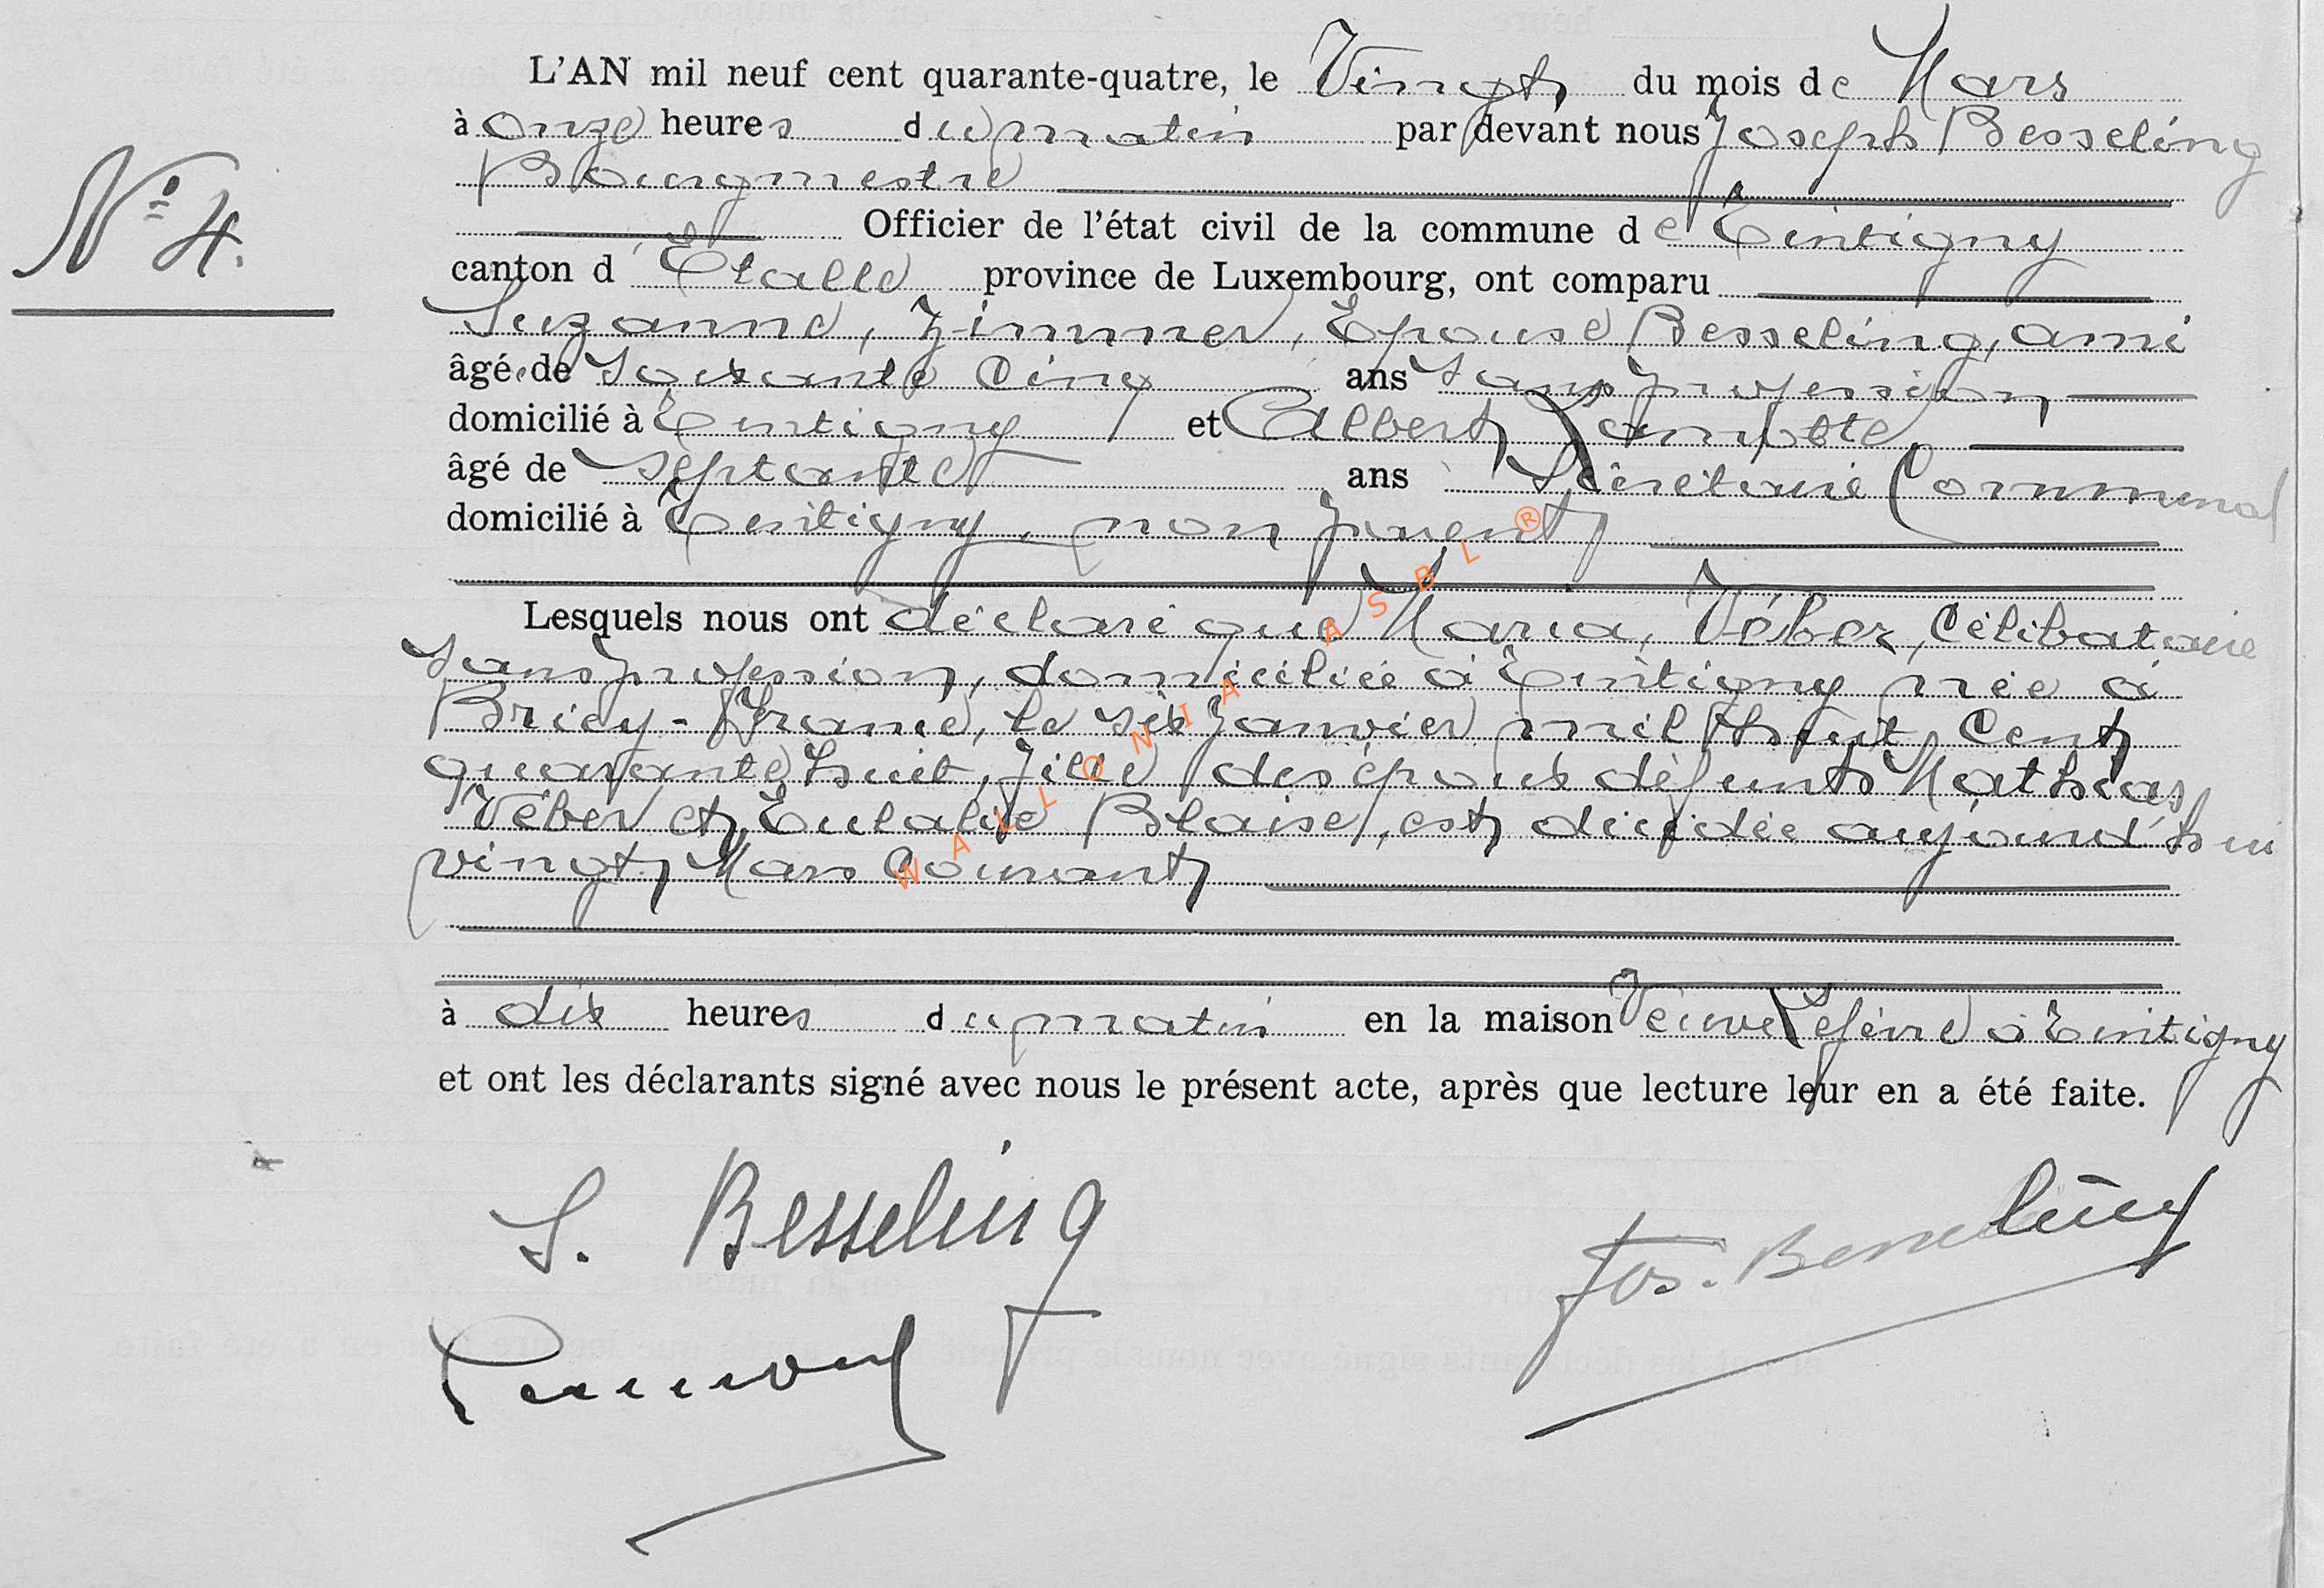 L'AN mil neuf cent quarante-quatre, le Vingt du mois de Mars
à onze heures du matin par devant nous Joseph Besseling
Bourgmestre
N° 4.
Officier de l'état civil de la commune de Tintigny
canton d'Etalle province de Luxembourg, ont comparu
Suzanne, Zimmer, Epouse Besseling, ami
âgé de soixante cinq ans sans profession
domicilié à Tintigny et Albert Lambotte
âgé de septante ans Sécrétaire Communal
domicilié à Tintigny, non parent
Lesquels nous ont déclaré que Maria, Véber, Célibataire
sans profession, domiciliée à Tintigny née à
Briey-France, le six Janvier mil huit Cent
quarante huit, fille des époux défunts Mathias
Véber et Eulalie Blaise, est décédée aujourd'hui
vingt Mars Courant
à dix heures du matin en la maison Veuve Lefèvre à Tintigny
et ont les déclarants signé avec nous le présent acte, après que lecture leur en a été faite.
S. Besseling
Jos. Besseling
WALLONIA ASBL ®